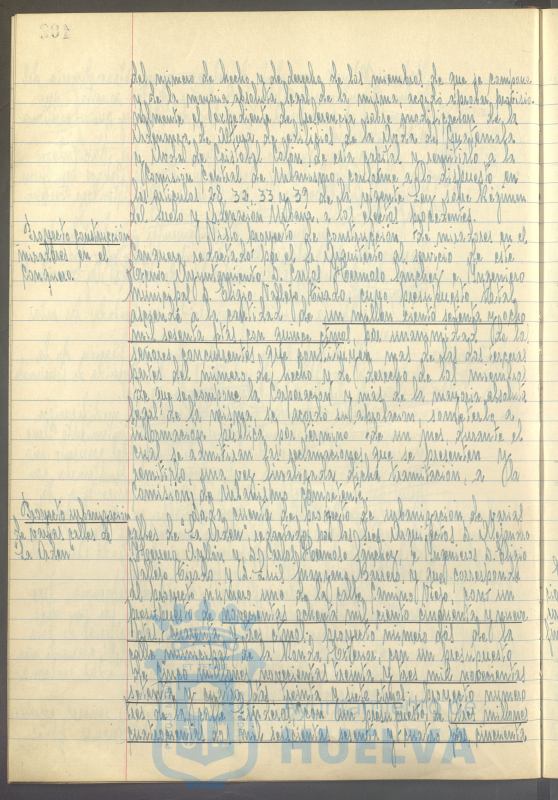 del número de hecho y de derecho de los miembros de que se compone
y de la mayoría absoluta legal de la misma, acordó aprobar provisio-
nalmente el expediente de referencia sobre modificación de la
Ordenanza de altura de edificios de la
y de Cristóbal Colón, de esta capital y remitirlo a la
Comisión Central de Urbanismo, conforme a lo dispuesto en
los artículos 28, 32, 33 y 39 de la vigente Ley sobre Régimen
del Suelo y Ordenación Urbana, a los efectos procedentes.
Proyecto construcción
miradores en el
Conquero.
Visto, proyecto de construcción de miradores en el
Conquero, redactado por el Arquitecto al servicio de este
Excmo Ayuntamiento D. Carlos Hermoso Sánchez e Ingeniero
municipal D. Eligio Vallejo Tirado, cuyo presupuesto total
asciende a la cantidad de un millón ciento setenta y ocho
mil sesenta ptas con quince ctmos, por unanimidad de los
señores concurrentes que constituyen más de las dos terceras
partes del número de hecho y de derecho de los miembros
de que se compone la Corporación y más de la mayoría absoluta
legal de la misma, se acordó su aprobación, someterlo a
información pública por término de un mes durante el
cual se admitirán las reclamaciones que se presenten y
remitirlo, una vez finalizada dicha tramitación, a la
Comisión de Urbanismo competente.
Proyecto urbanización
de varias calles de
"La Orden"
Dada cuenta de proyecto de urbanización de varias
calles de "La Orden" redactados por los Sres. Arquitectos D. Alejandro
Herrero Ayllón y D. Carlos Hermoso Sánchez e Ingenieros D. Eligio
Vallejo Tirado y D. Luis y que corresponde
al proyecto número uno de la calle Camino Viejo, con un
presupuesto de ochenta mil ciento cincuenta y nueve
ptas ctmos, proyecto número dos de la
calle municipal de la Ronda Exterior, con un presupuesto
de cinco millones novecientas treinta y tres mil novecientas
setenta y cuatro ptas treinta y siete ctmos; proyecto número
tres de la con un presupuesto de tres millones
cuatrocientas dos mil seiscientas sesenta y cuatro ptas cincuenta
HUELVA